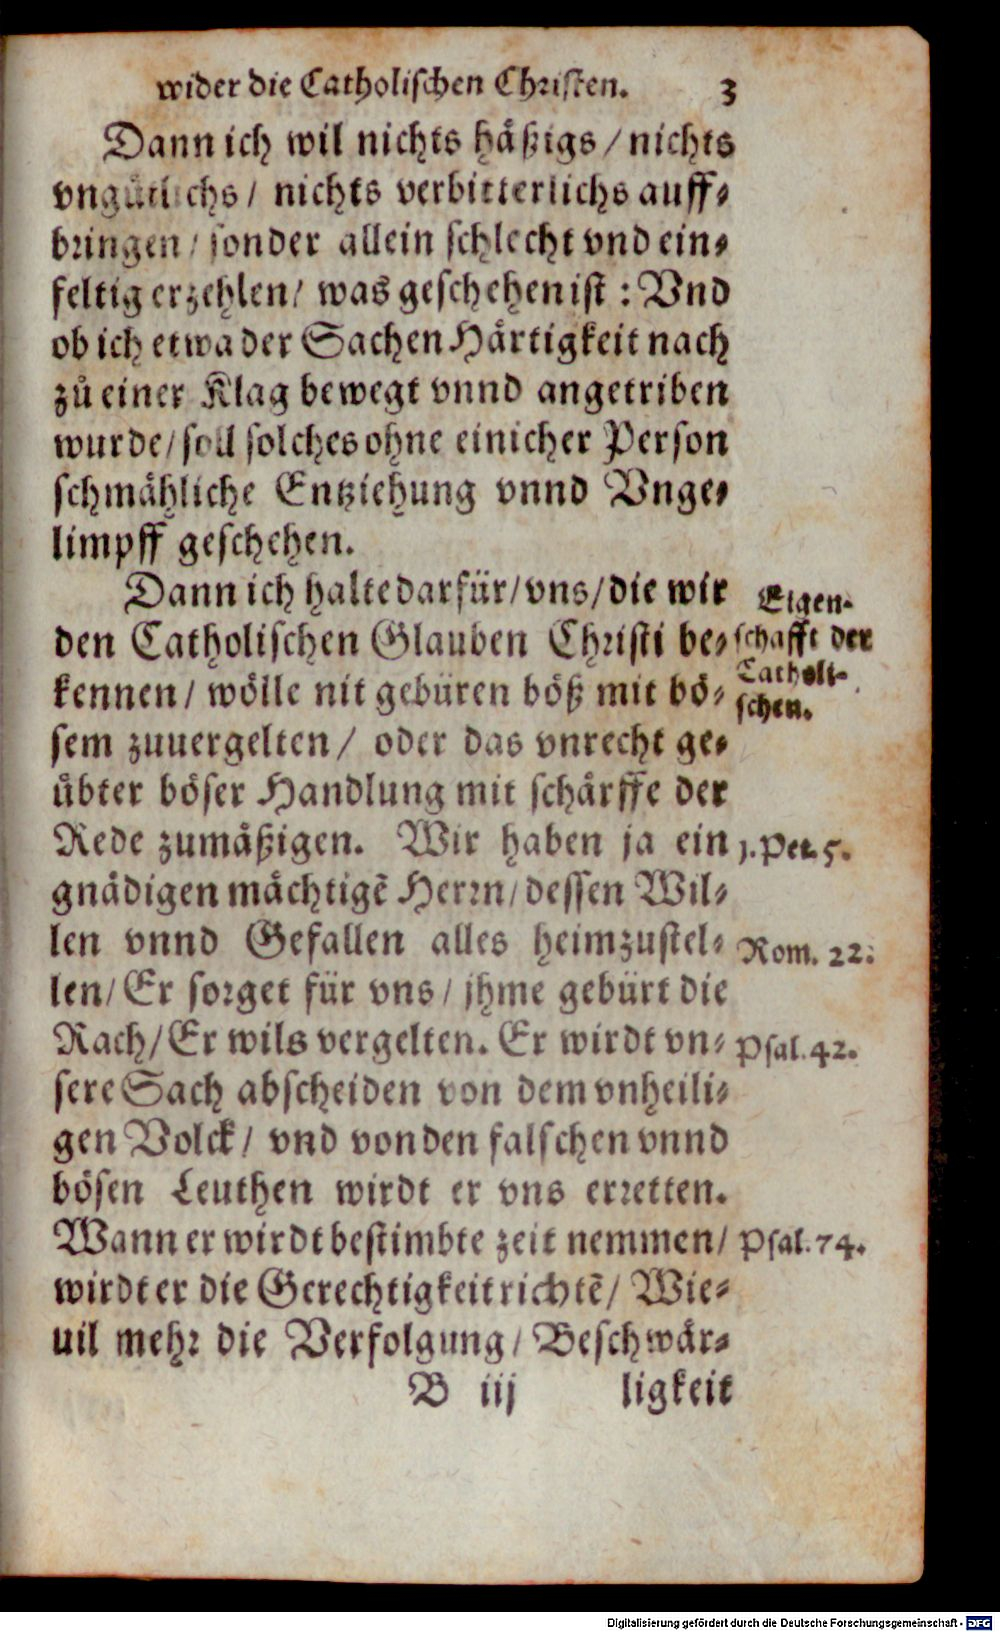 wider die Catholischen Christen. 3
Dann ich wil nichts håßigs / nichts
vngütlichs / nichts verbitterlichs auff⸗
bringen / sonder allein schlecht vnd ein⸗
feltig erzehlen / was geschehen ist : Vnd
ob ich etwa der Sachen Hårtigkeit nach
zů einer Klag bewegt vnnd angetriben
wurde / soll solches ohne einicher Person
schmåhliche Entziehung vnnd Vnge⸗
limpff geschehen.
Dann ich halte darfür / vns / die wir
den Catholischen Glauben Christi be⸗
kennen / wölle nit gebüren böß mit bö⸗
sem zuuergelten / oder das vnrecht ge⸗
übter böser Handlung mit schårffe der
Rede zumåßigen. Wir haben ja ein
gnådigen måchtigẽ Herrn / dessen Wil⸗
len vnnd Gefallen alles heimzustel⸗
len / Er sorget für vns / jhme gebürt die
Rach / Er wils vergelten. Er wirdt vn⸗
sere Sach abscheiden von dem vnheili⸗
gen Volck / vnd von den falschen vnnd
bösen Leuthen wirdt er vns erretten.
Wann er wirdt bestimbte zeit nemmen /
wirdt er die Gerechtigkeit richtẽ / Wie⸗
uil mehr die Verfolgung / Beschwår⸗
B iij ligkeit
Eigen⸗
schafft der
Catholi⸗
schen.
1. Pet. 5.
Rom. 22.
Psal. 42.
Psal. 74.
Digitalisierung gefördert durch die Deutsche Forschungsgemeinschaft - DFG